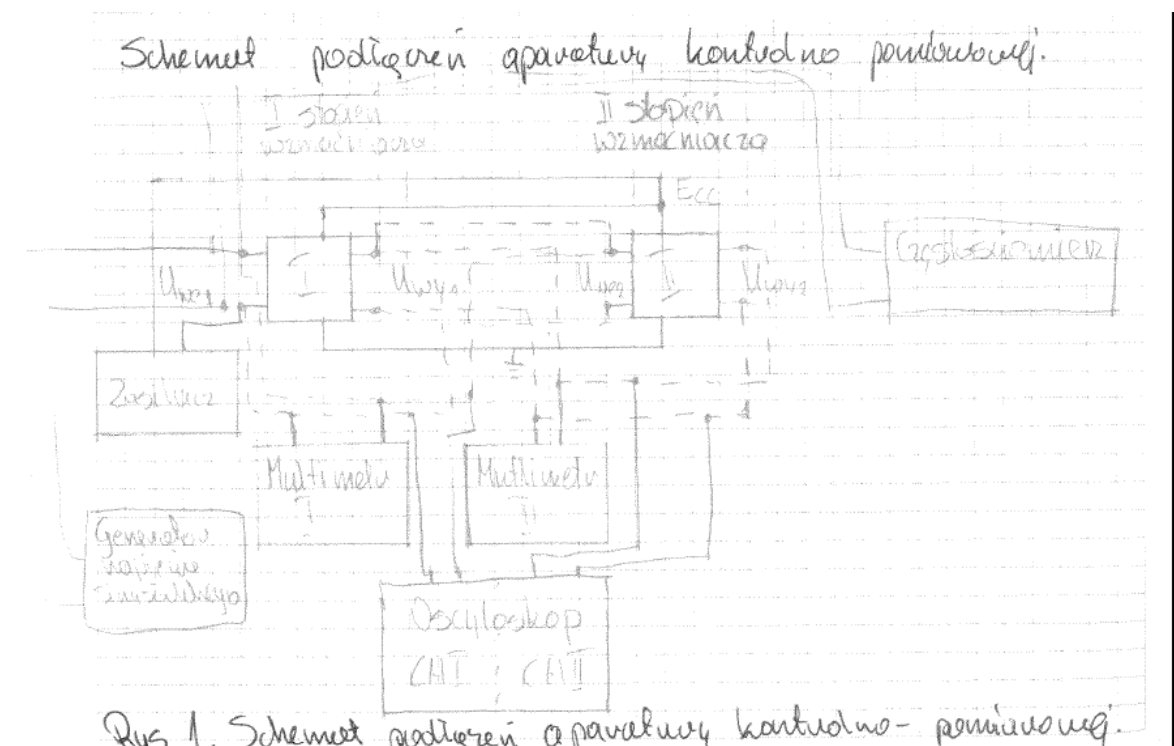 Schemat podłączeń aparatury kontrolno pomiarowej.
I stopień
wzmacniacza
II stopień
wzmacniacza
Ecc
Częstościomierz
I
II
Uwe1
Uwy1
Uwe2
Uwy2
I
Zasilacz
Multimetr
I
Mutlimetr
II
Generator
napięcia
Oscyloskop
CHI CHII
Rys 1. Schemat podłączeń aparatury kontrolno-pomiarowej.